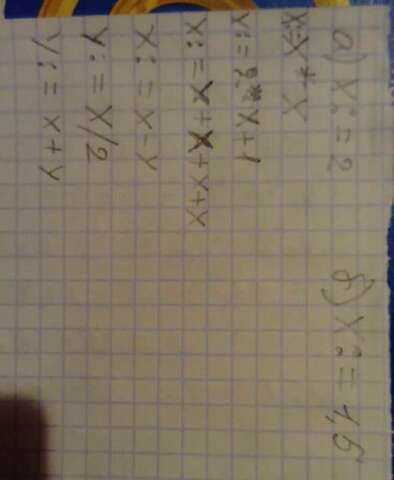 а) X:=2
X=X*X
Y:=2*X+1
X:=X+X+X+Y
X:=X-Y
Y:=X/2
Y:=X+Y
б) X:=1,5